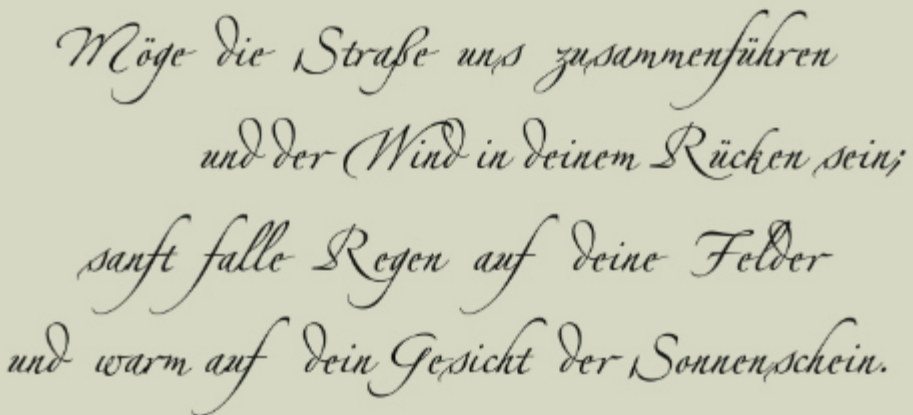 Möge die Straße uns zusammenführen
und der Wind in deinem Rücken sein;
sanft falle Regen auf deine Felder
und warm auf dein Gesicht der Sonnenschein.